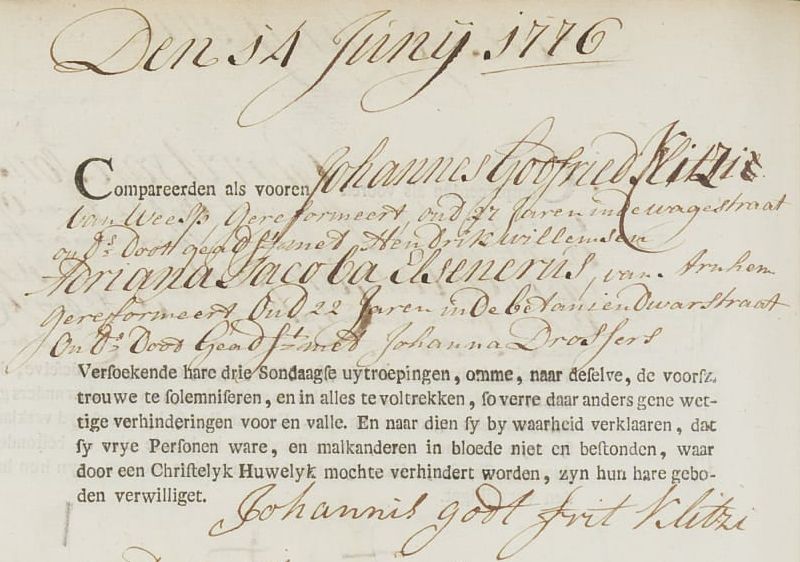 Den 14 Junÿ 1776
Compareerden als vooren Johannes Godfried Klitzie
van Weesp, gereformeert, oud 27 Jaren in de wagestraat
ouds doot geadst met Hendrik Willemsen
Adriana Jacoba Elsenerus, van Arnhem
gereformeert, Oud 22 Jaren in de betanien Dwarstraat
Ouds Doot Geadst met Johanna Drossers
Verſoekende hare drie Sondaagſe uytroepingen, omme, naar deſelve, de voorſz.
trouwe te ſolemniſeren, en in alles te voltrekken, ſo verre daar anders gene wet-
tige verhinderingen voor en valle. En naar dien ſy by waarheid verklaaren, dat
ſy vrye Perſonen ware, en malkanderen in bloede niet en beſtonden, waar
door een Chriſtelyk Huwelyk mochte verhindert worden, zyn hun hare gebo-
den verwilliget.
Johannis godt frit Klitzi